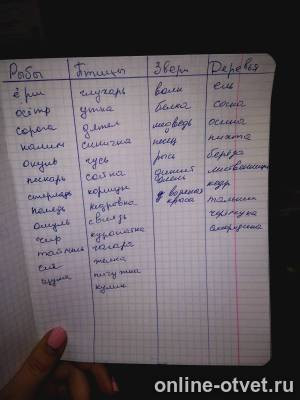 Рыбы Птицы Звери Деревья
ёрш глухарь волк ель
осётр утка белка сосна
сорога дятел медведь осина
налим синичка песец пихта
окунь гусь рысь берёза
пескарь сойка дикий олень лиственница
стерлядь коршун кедр
пелядь кедровка тальник
окунь свиязь черёмуха
чир куропатка смородина
таймень гагара
сиг желна
щука пичужка
кулик
online-otvet.ru